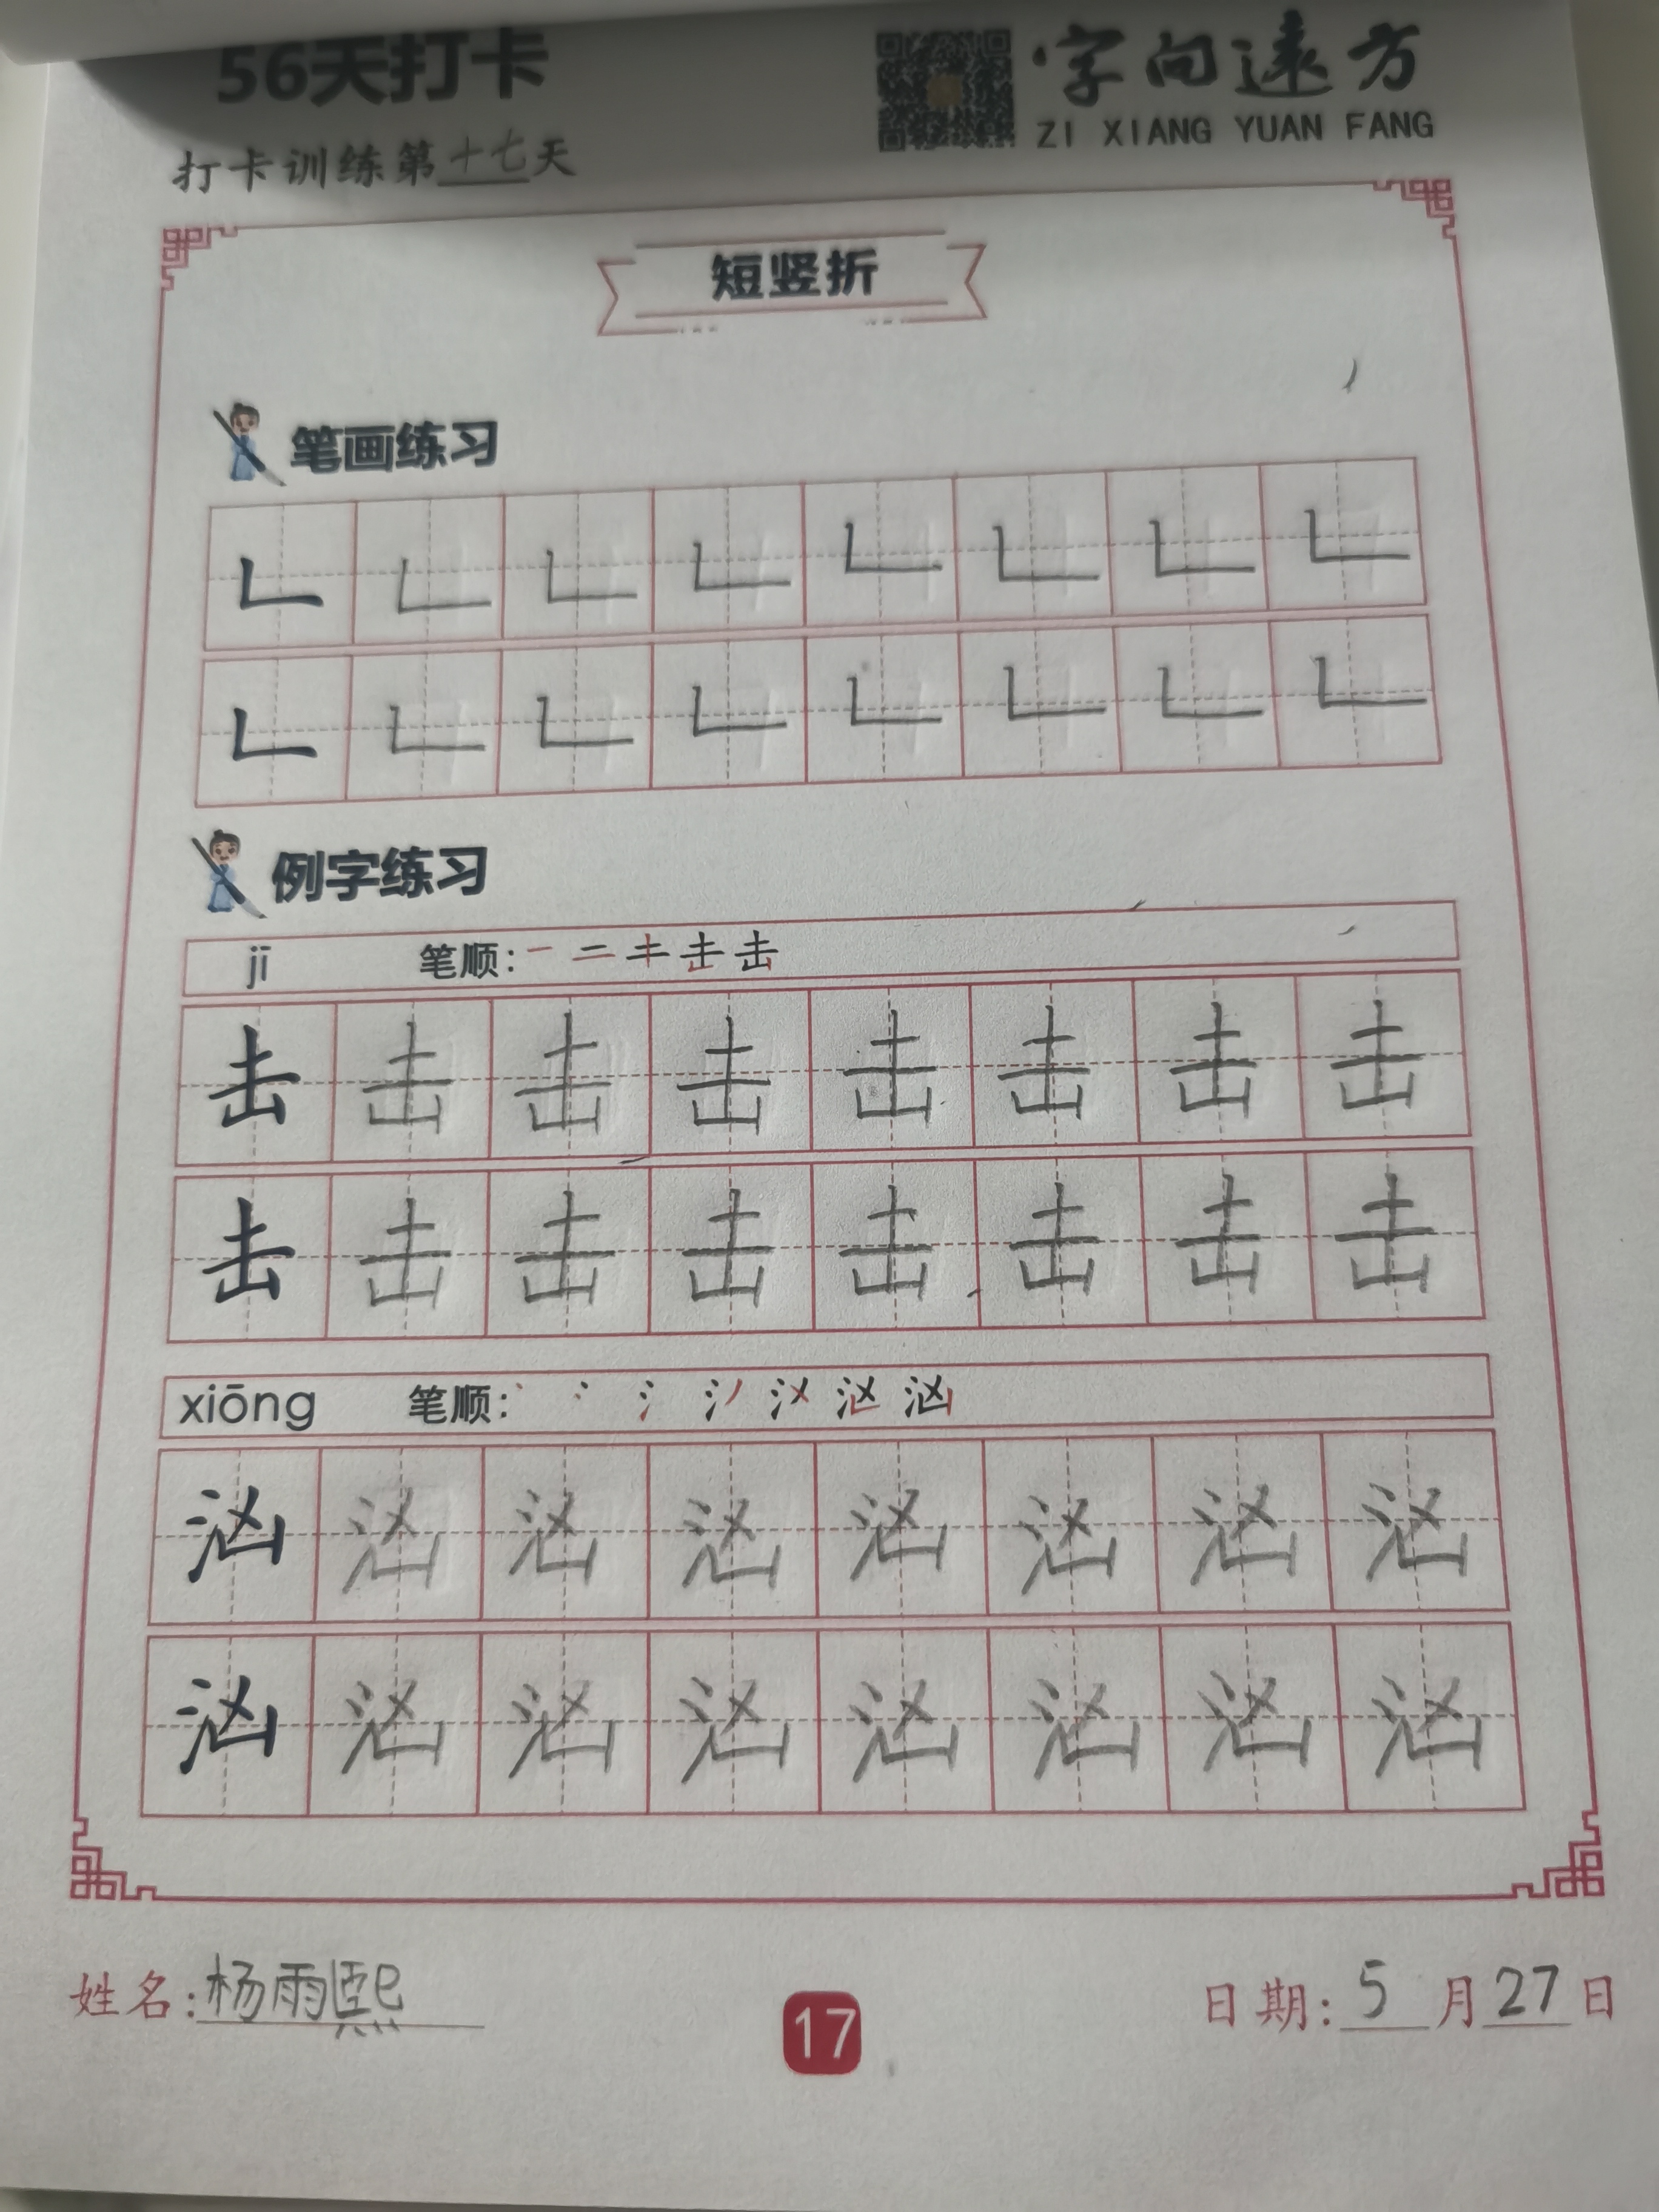 56天打卡
字向远方
ZI XIANG YUAN FANG
打卡训练第十七天
短竖折
笔画练习
例字练习
jī 笔顺:
击 击 击 击 击 击 击 击
击 击 击 击 击 击 击 击
xiōng 笔顺:
汹 汹 汹 汹 汹 汹 汹 汹
汹 汹 汹 汹 汹 汹 汹 汹
姓名:杨雨熙
17
日期:5月27日